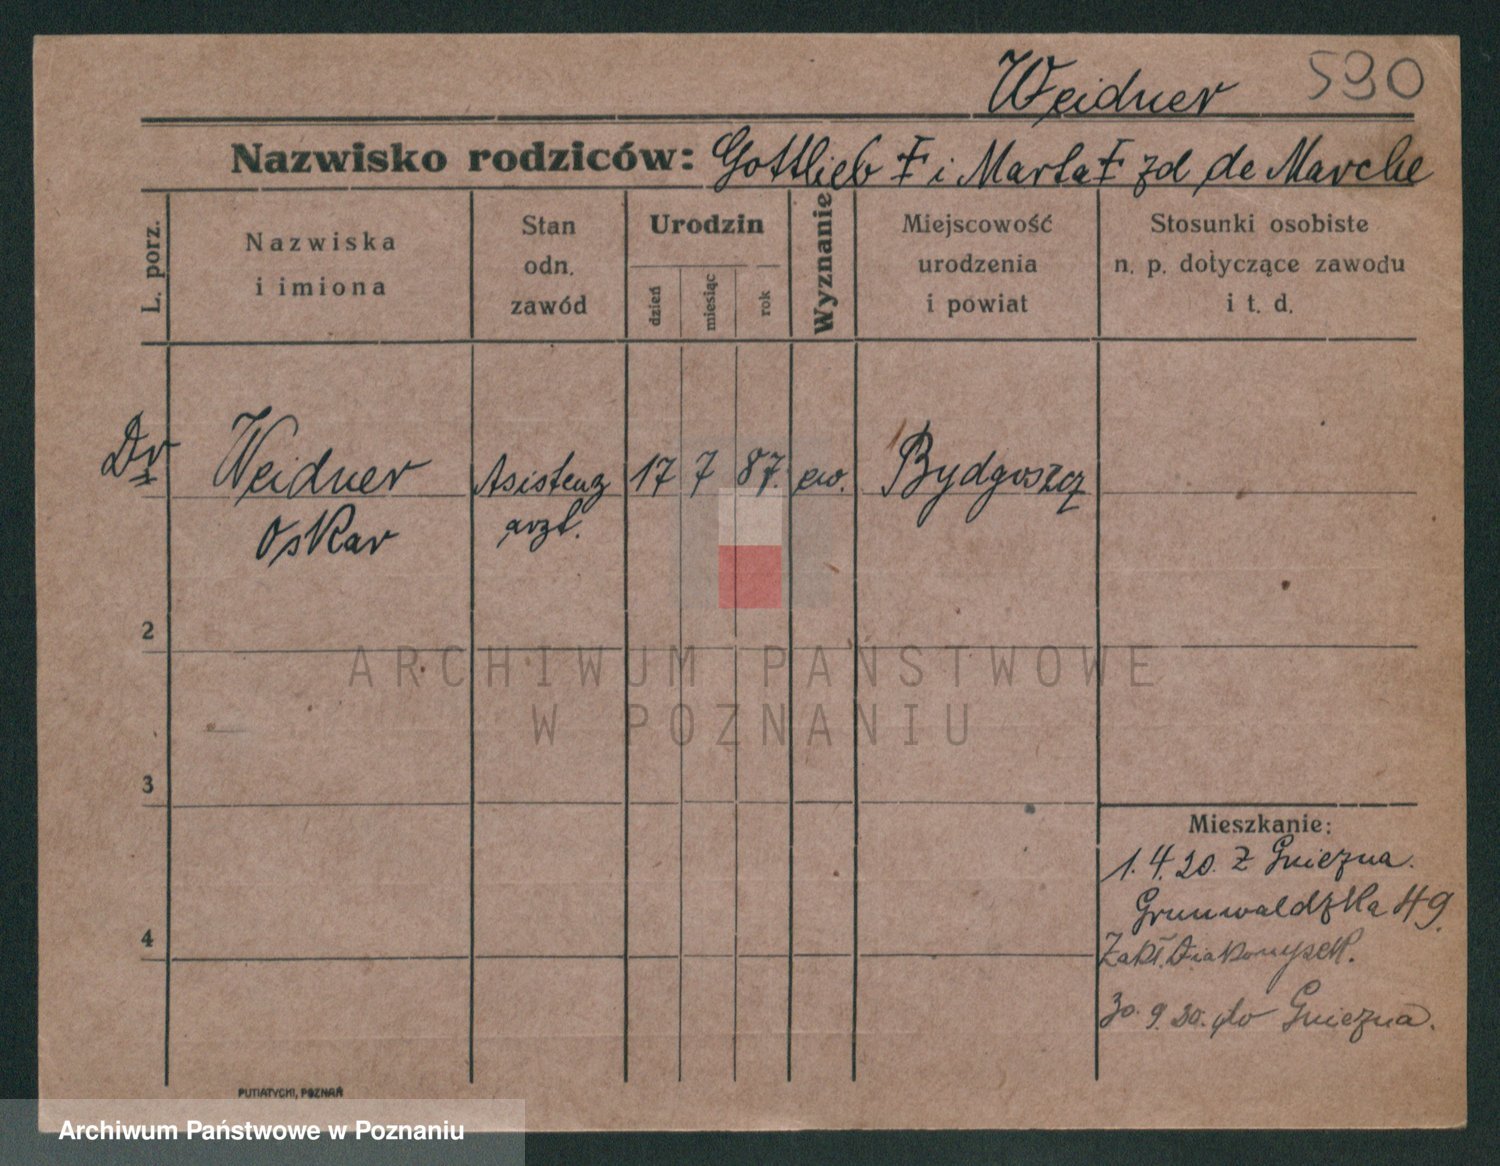 Weidner 590
Nazwisko rodziców: Gottlieb ‡ i Marta ‡ zd de Marche
L. porz.
Nazwiska
i imiona
Stan
odn.
zawód
Urodzin
dzień
miesiąc
rok
Wyznanie
Miejscowość
urodzenia
i powiat
Stosunki osobiste
n. p. dotyczące zawodu
i t. d.
Dr Weidner Asistenz 17 7 87. ew. Bydgoszcz
Oskar arzt.
2
3
4
Mieszkanie:
1. 4. 20. z Gniezna.
Grunwaldzka 49.
Zakł. Diakonysek.
30. 9. 20. do Gniezna.
PUTIATYCKI, POZNAŃ
ARCHIWUM PAŃSTWOWE
W POZNANIU
Archiwum Państwowe w Poznaniu